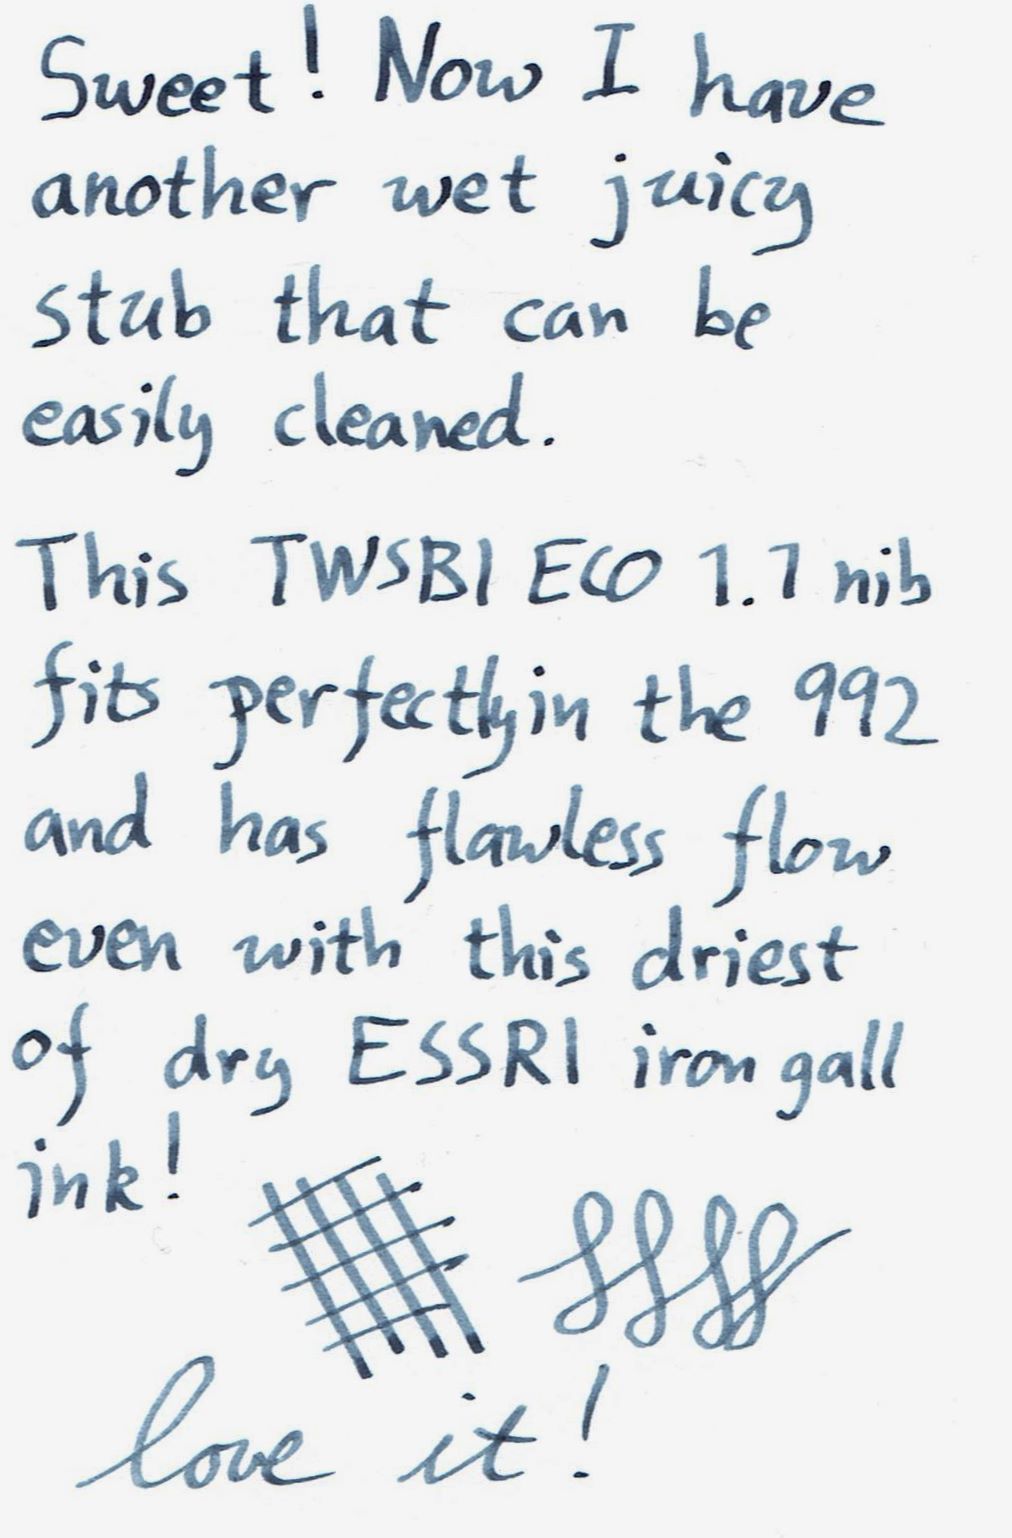 Sweet! Now I have
another wet juicy
stub that can be
easily cleaned.
This TWSBI ECO 1.1 nib
fits perfectly in the 992
and has flawless flow
even with this driest
of dry ESSRI iron gall
ink!
love it!